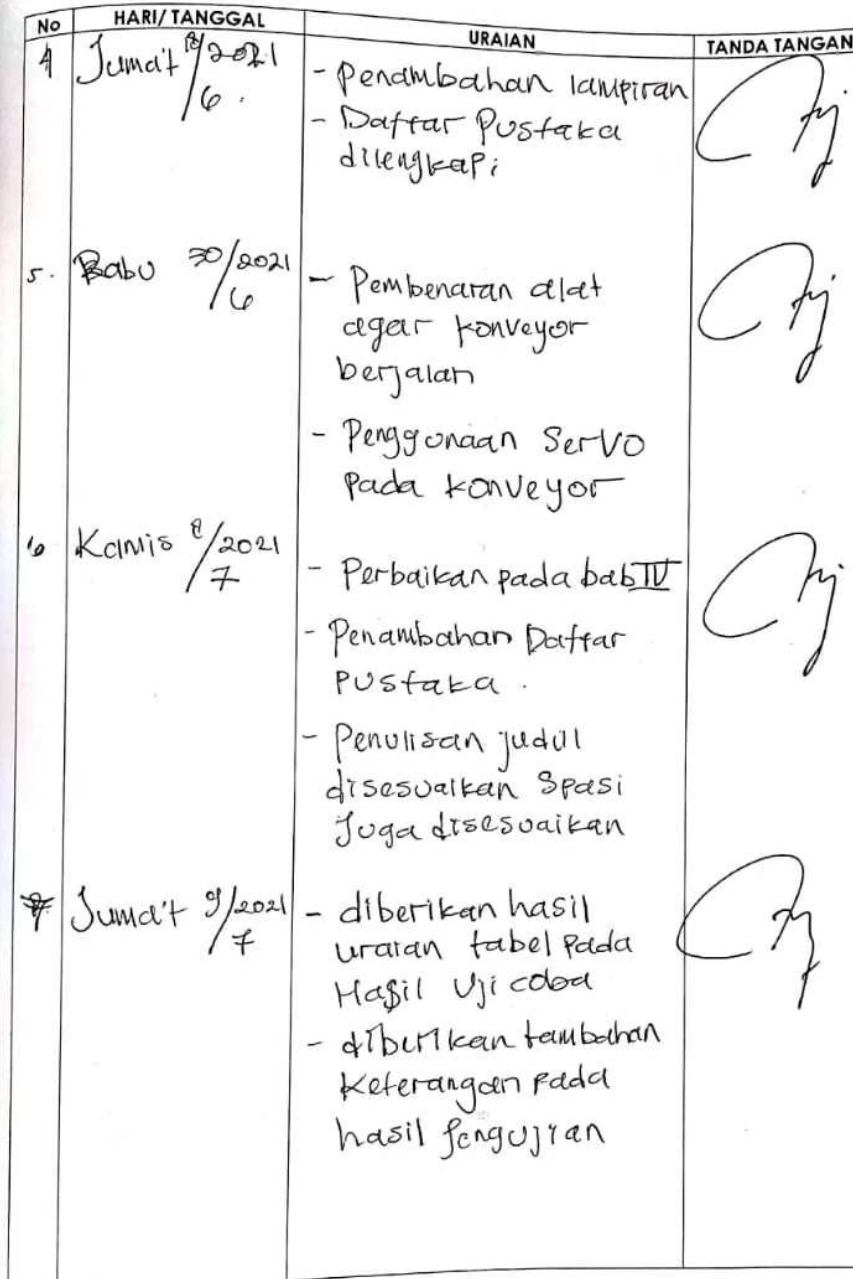 No HARI/TANGGAL URAIAN TANDA TANGAN
4 Juma't 18/2021
/6.
- Penambahan lampiran
- Daftar Pustaka
dilengkapi
5. Rabu 30/2021
/6
- Pembenaran alat
agar konveyor
berjalan
- Penggunaan Servo
Pada konveyor
6 Kamis 8/2021
/7
- Perbaikan pada bab IV
- Penambahan Daftar
Pustaka.
- Penulisan judul
disesuaikan Spasi
Juga disesuaikan
7 Juma't 9/2021
/7
- diberikan hasil
uraian tabel Pada
Hasil Uji coba
- diberikan tambahan
Keterangan Pada
hasil Pengujian